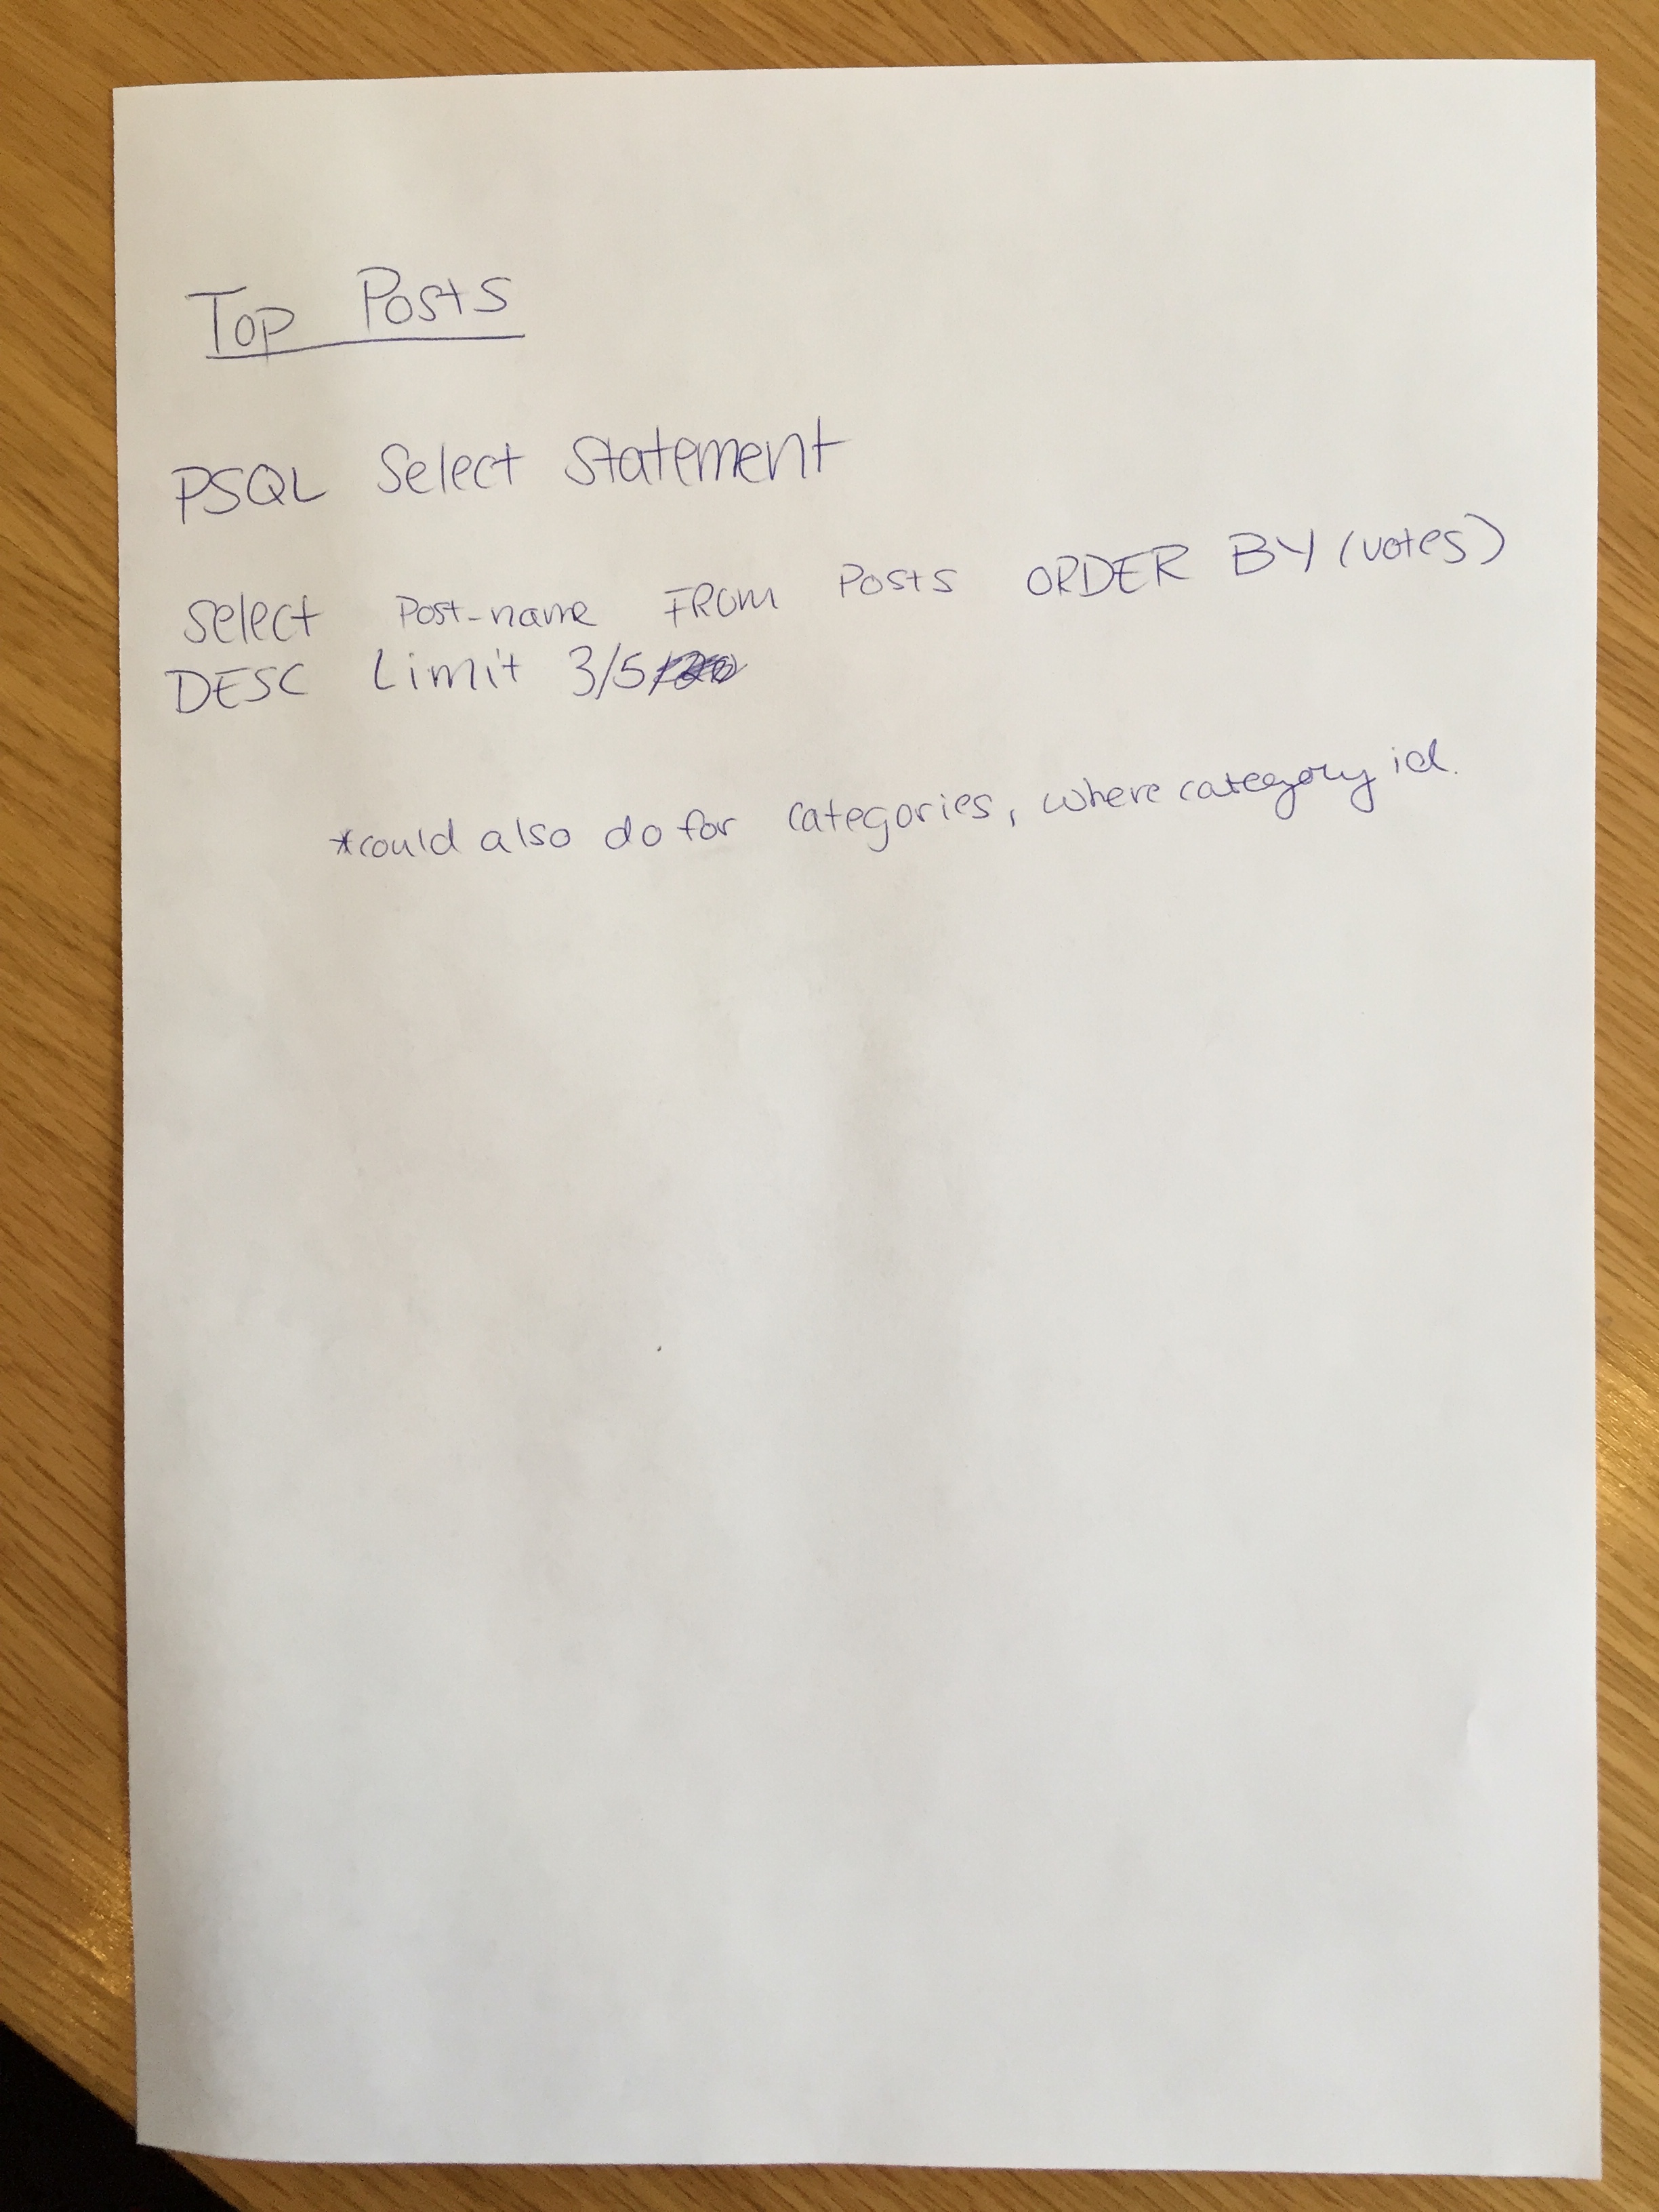 Top Posts
PSQL Select Statement
Select Post-name FROM Posts ORDER BY (votes)
DESC Limit 3/5
*could also do for categories, where category id.